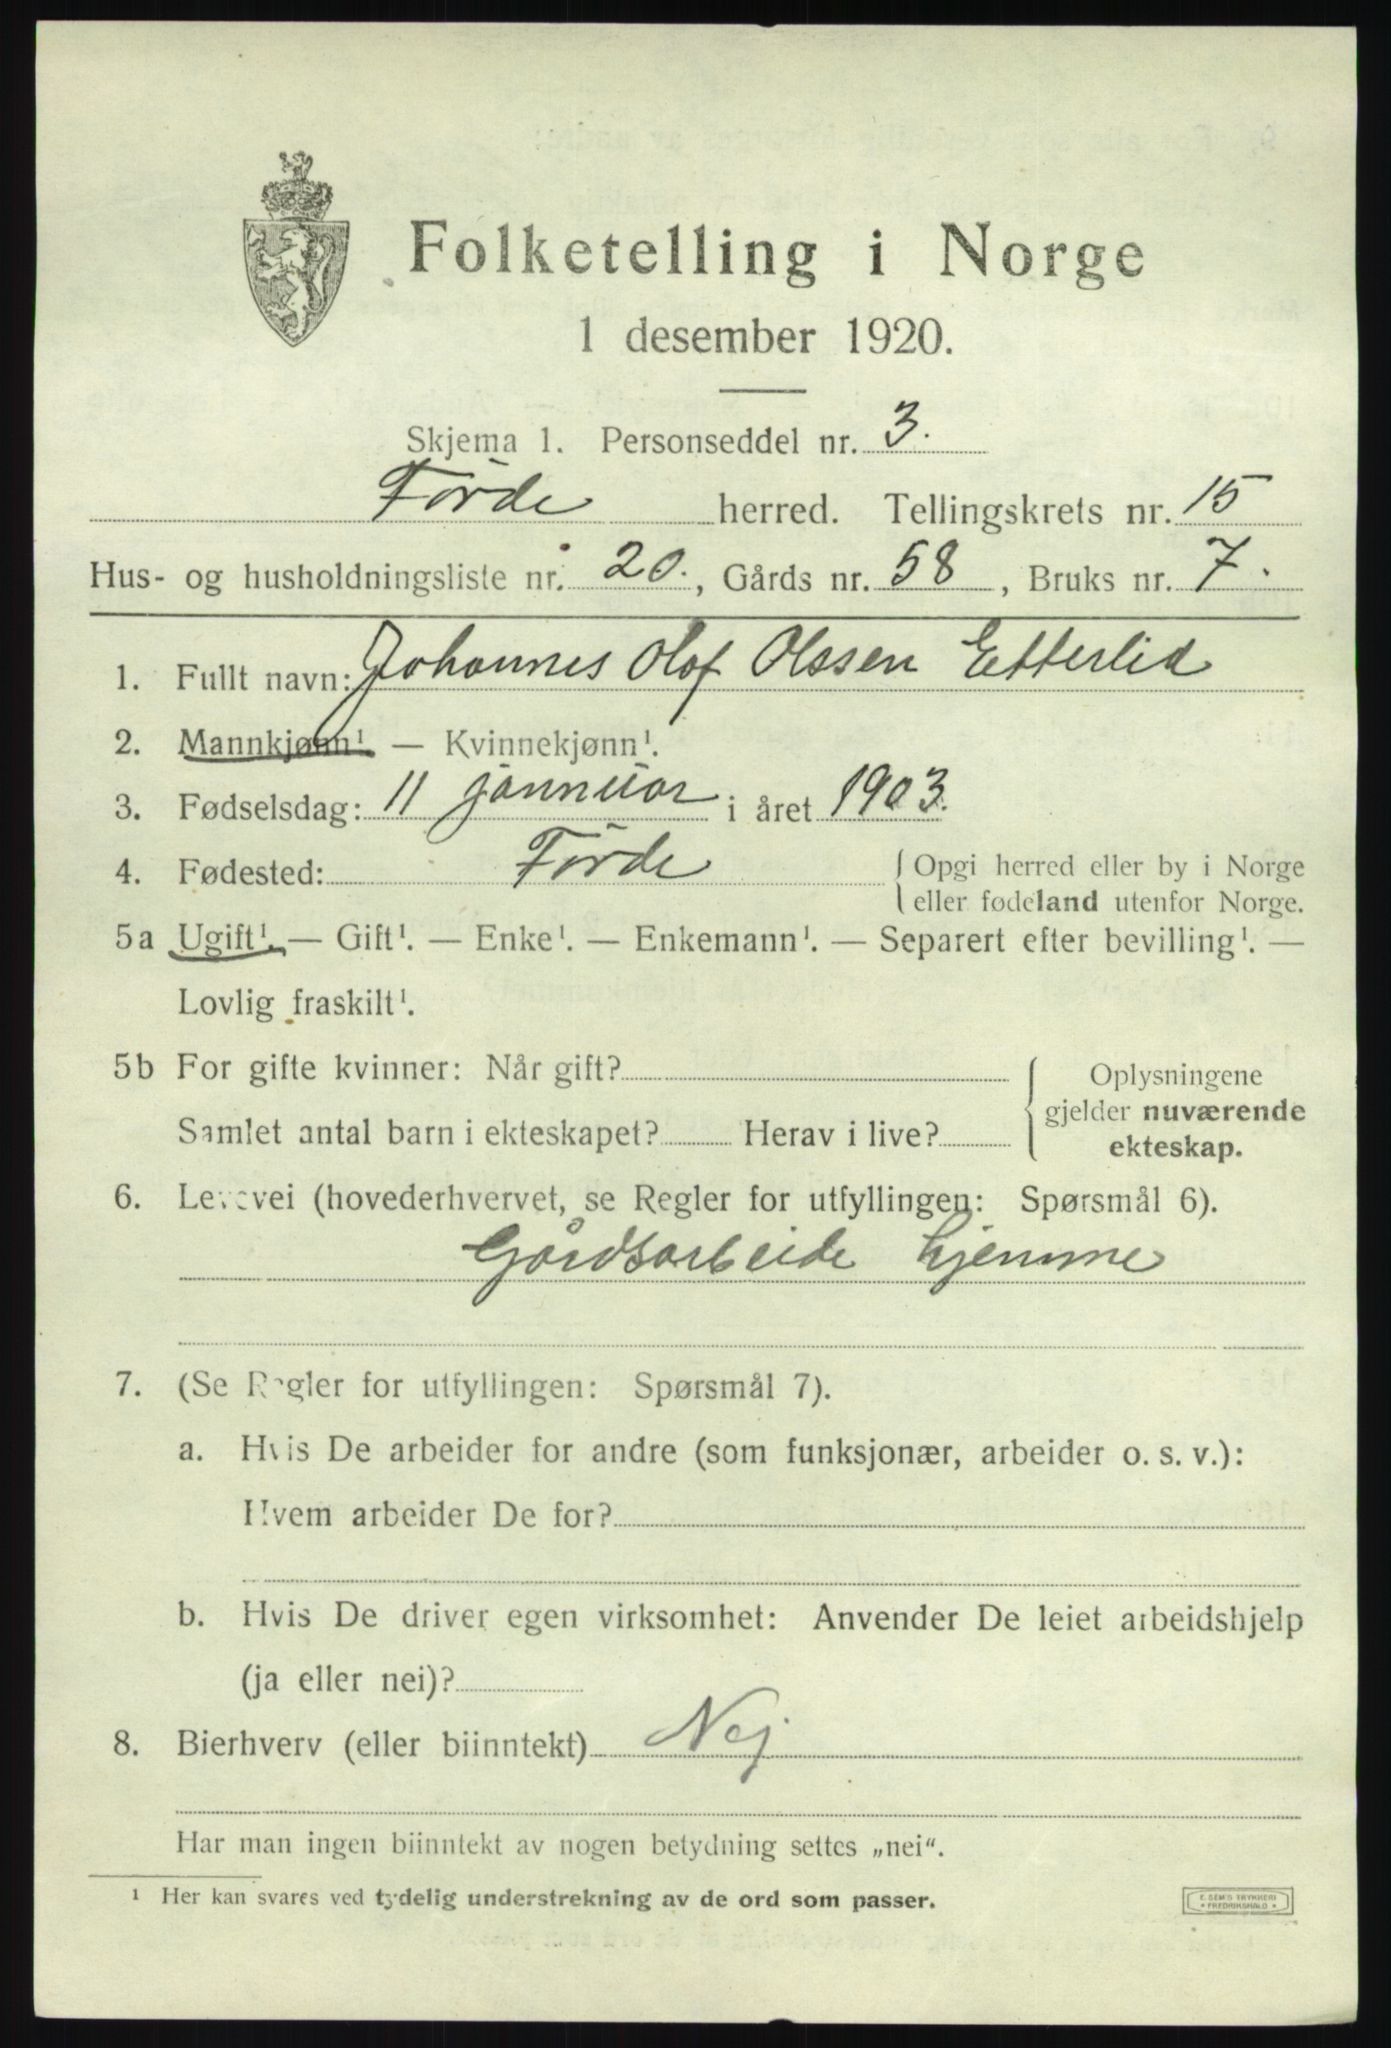 Folketelling i Norge
1 desember 1920.
Skjema 1. Personseddel nr. 3.
Førde herred. Tellingskrets nr. 15
Hus- og husholdningsliste nr. 20., Gårds nr. 58, Bruks nr. 7.
1. Fullt navn: Johannes Olof Olssen Etterlid
2. Mannkjønn¹ — Kvinnekjønn¹.
3. Fødselsdag: 11 jannuar i året 1903.
4. Fødested: Førde { Opgi herred eller by i Norge
eller fødeland utenfor Norge.
5a Ugift¹. — Gift¹. — Enke¹. — Enkemann¹. — Separert efter bevilling¹. —
Lovlig fraskilt¹.
5b For gifte kvinner: Når gift?
Samlet antal barn i ekteskapet? Herav i live?
{ Oplysningene
gjelder nuværende
ekteskap.
6. Levevei (hovederhvervet, se Regler for utfyllingen: Spørsmål 6).
Gårdsarbeide hjemme
7. (Se Regler for utfyllingen: Spørsmål 7).
a. Hvis De arbeider for andre (som funksjonær, arbeider o. s. v.):
Hvem arbeider De for?
b. Hvis De driver egen virksomhet: Anvender De leiet arbeidshjelp
(ja eller nei)?
8. Bierhverv (eller biinntekt) Nej
Har man ingen biinntekt av nogen betydning settes „nei“.
¹ Her kan svares ved tydelig understrekning av de ord som passer.
E. SEM'S TRYKKERI
• FREDRIKSHALD •